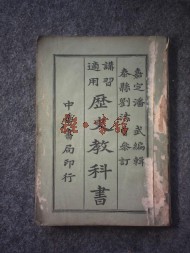 嘉定潘 武編輯
泰縣劉法曾參訂
講習適用
歷史教科書
中華書局印行